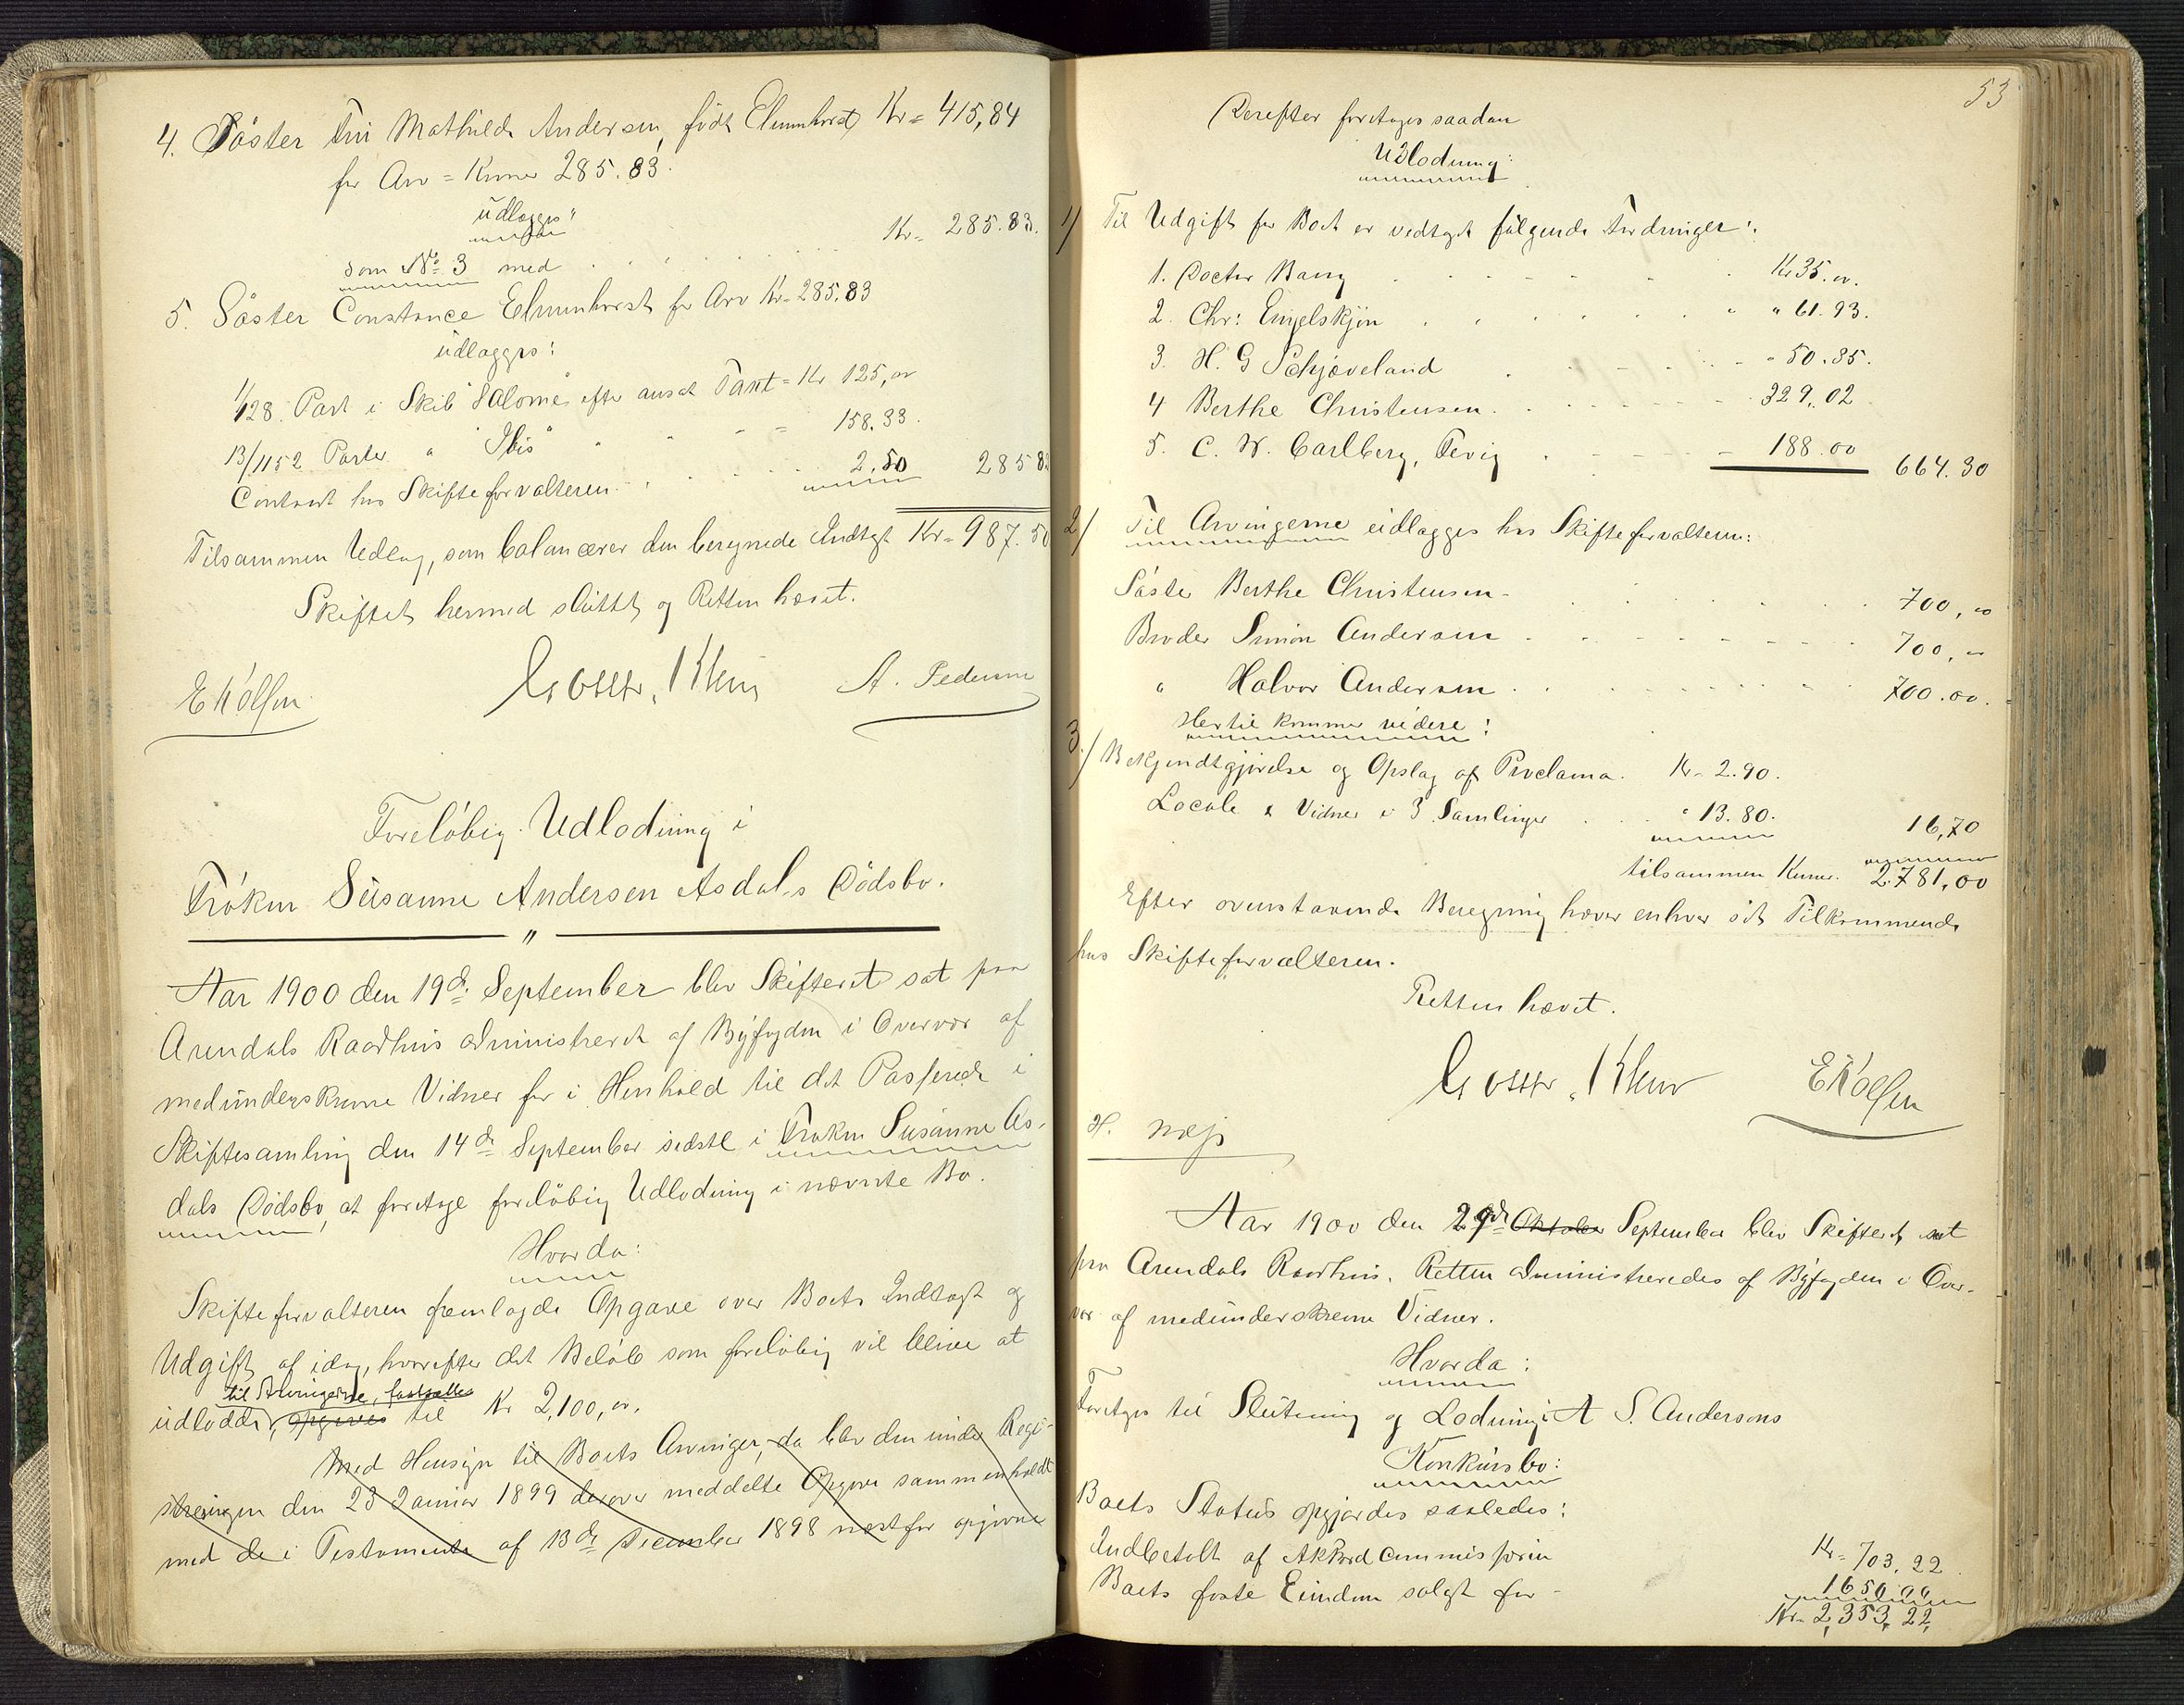 4. Söster Fru Mathilde Andersen, födt Elmenhorst Kr = 415,84
for Arv = Kroner 285.83.
udlægges:
som No 3 med . . . . . Kr= 285.83.
5. Söster Constance Elmenhorst for Arv Kr= 285,83
udlægges:
1/128 Part i Skib "Salome" efter ansat Taxt = Kr 125,00
13/1152 Parter " "Ibis" " " - = 158.33.
Contant hos Skifteforvalteren . . . . 2.50 285 83
Tilsammen Udlæg, som balancerer den beregnede Indtægt Kr= 987.50
Skiftet hermed sluttet og Retten hævet.
A. Pedersen
Foreløbig Udlodning i
Frøken Susanne Andersen Asdals Dødsbo.
"
Aar 1900 den 19de September blev Skifteret sat paa
Arendals Raadhus administreret af Byfogden i Overvær af
medunderskrevne Vidner for i Henhold til det Passerede i
Skiftesamling den 14de September sidstl. i Frøken Susanne As-
dals Dødsbo, at foretage foreløbig Udlodning i nævnte Bo.
Hvorda:
Skifteforvalteren fremlagde Opgave over Boets Indtægt og
Udgift af idag, hvorefter det Beløb som foreløbig vil blive at
til Arvingerne, fastsættes
udlodde, opgives til Kr 2,100,00.
Med Hensyn til Boets Arvinger, da blev den under Regi-
streringen den 23 Januar 1899 derover meddelte Opgave sammenholdt
med de i Testamente af 13de December 1898 næstfor opgivne
53
Derefter foretages saadan
Udlodning:
1/ Til Udgift for Boet er vedtaget følgende Fordringer:
1. Doctor Bang . . . . Kr 35.00.
2. Chr: Engelskjøn . . . . " 61.93.
3. H. G Schjoveland . . . - 50.35.
4 Berthe Christensen . . . . 329.02
5. C. W. Carlberg, Fevig . . . - 188.00 664.30
2/ Til Arvingerne udlægges hos Skifteforvalteren:
Søster Berthe Christensen - . . . . 700,00
Broder Simon Andersen . . . . 700,00
" Halvor Andersen . . . . 700.00.
Hertil kommer videre:
3./ Bekjendtgjørelse og Opslag af Proclama. Kr. 2.90.
Locale & Vidner i 3 Samlinger . . . " 13.80. 16,70
tilsammen Kroner. 2.781,00
Efter ovenstaaende Beregning hæver enhver sit Tilkommende
hos Skifteforvalteren.
Retten hævet.
Aar 1900 den 29de Oktober September blev Skifteret sat
paa Arendals Raadhus. Retten administreredes af Byfogden i Over-
vær af medunderskrevne Vidner.
Hvorda:
Foretages til Slutning og Lodning i A S. Andersens
Konkursbo:
Boets Status opgjordes saaledes:
Indbetalt af Akkordcommissionen Kr= 703,22
Boets faste Eiendom solgt for - 1650.00
Kr= 2,353,22,